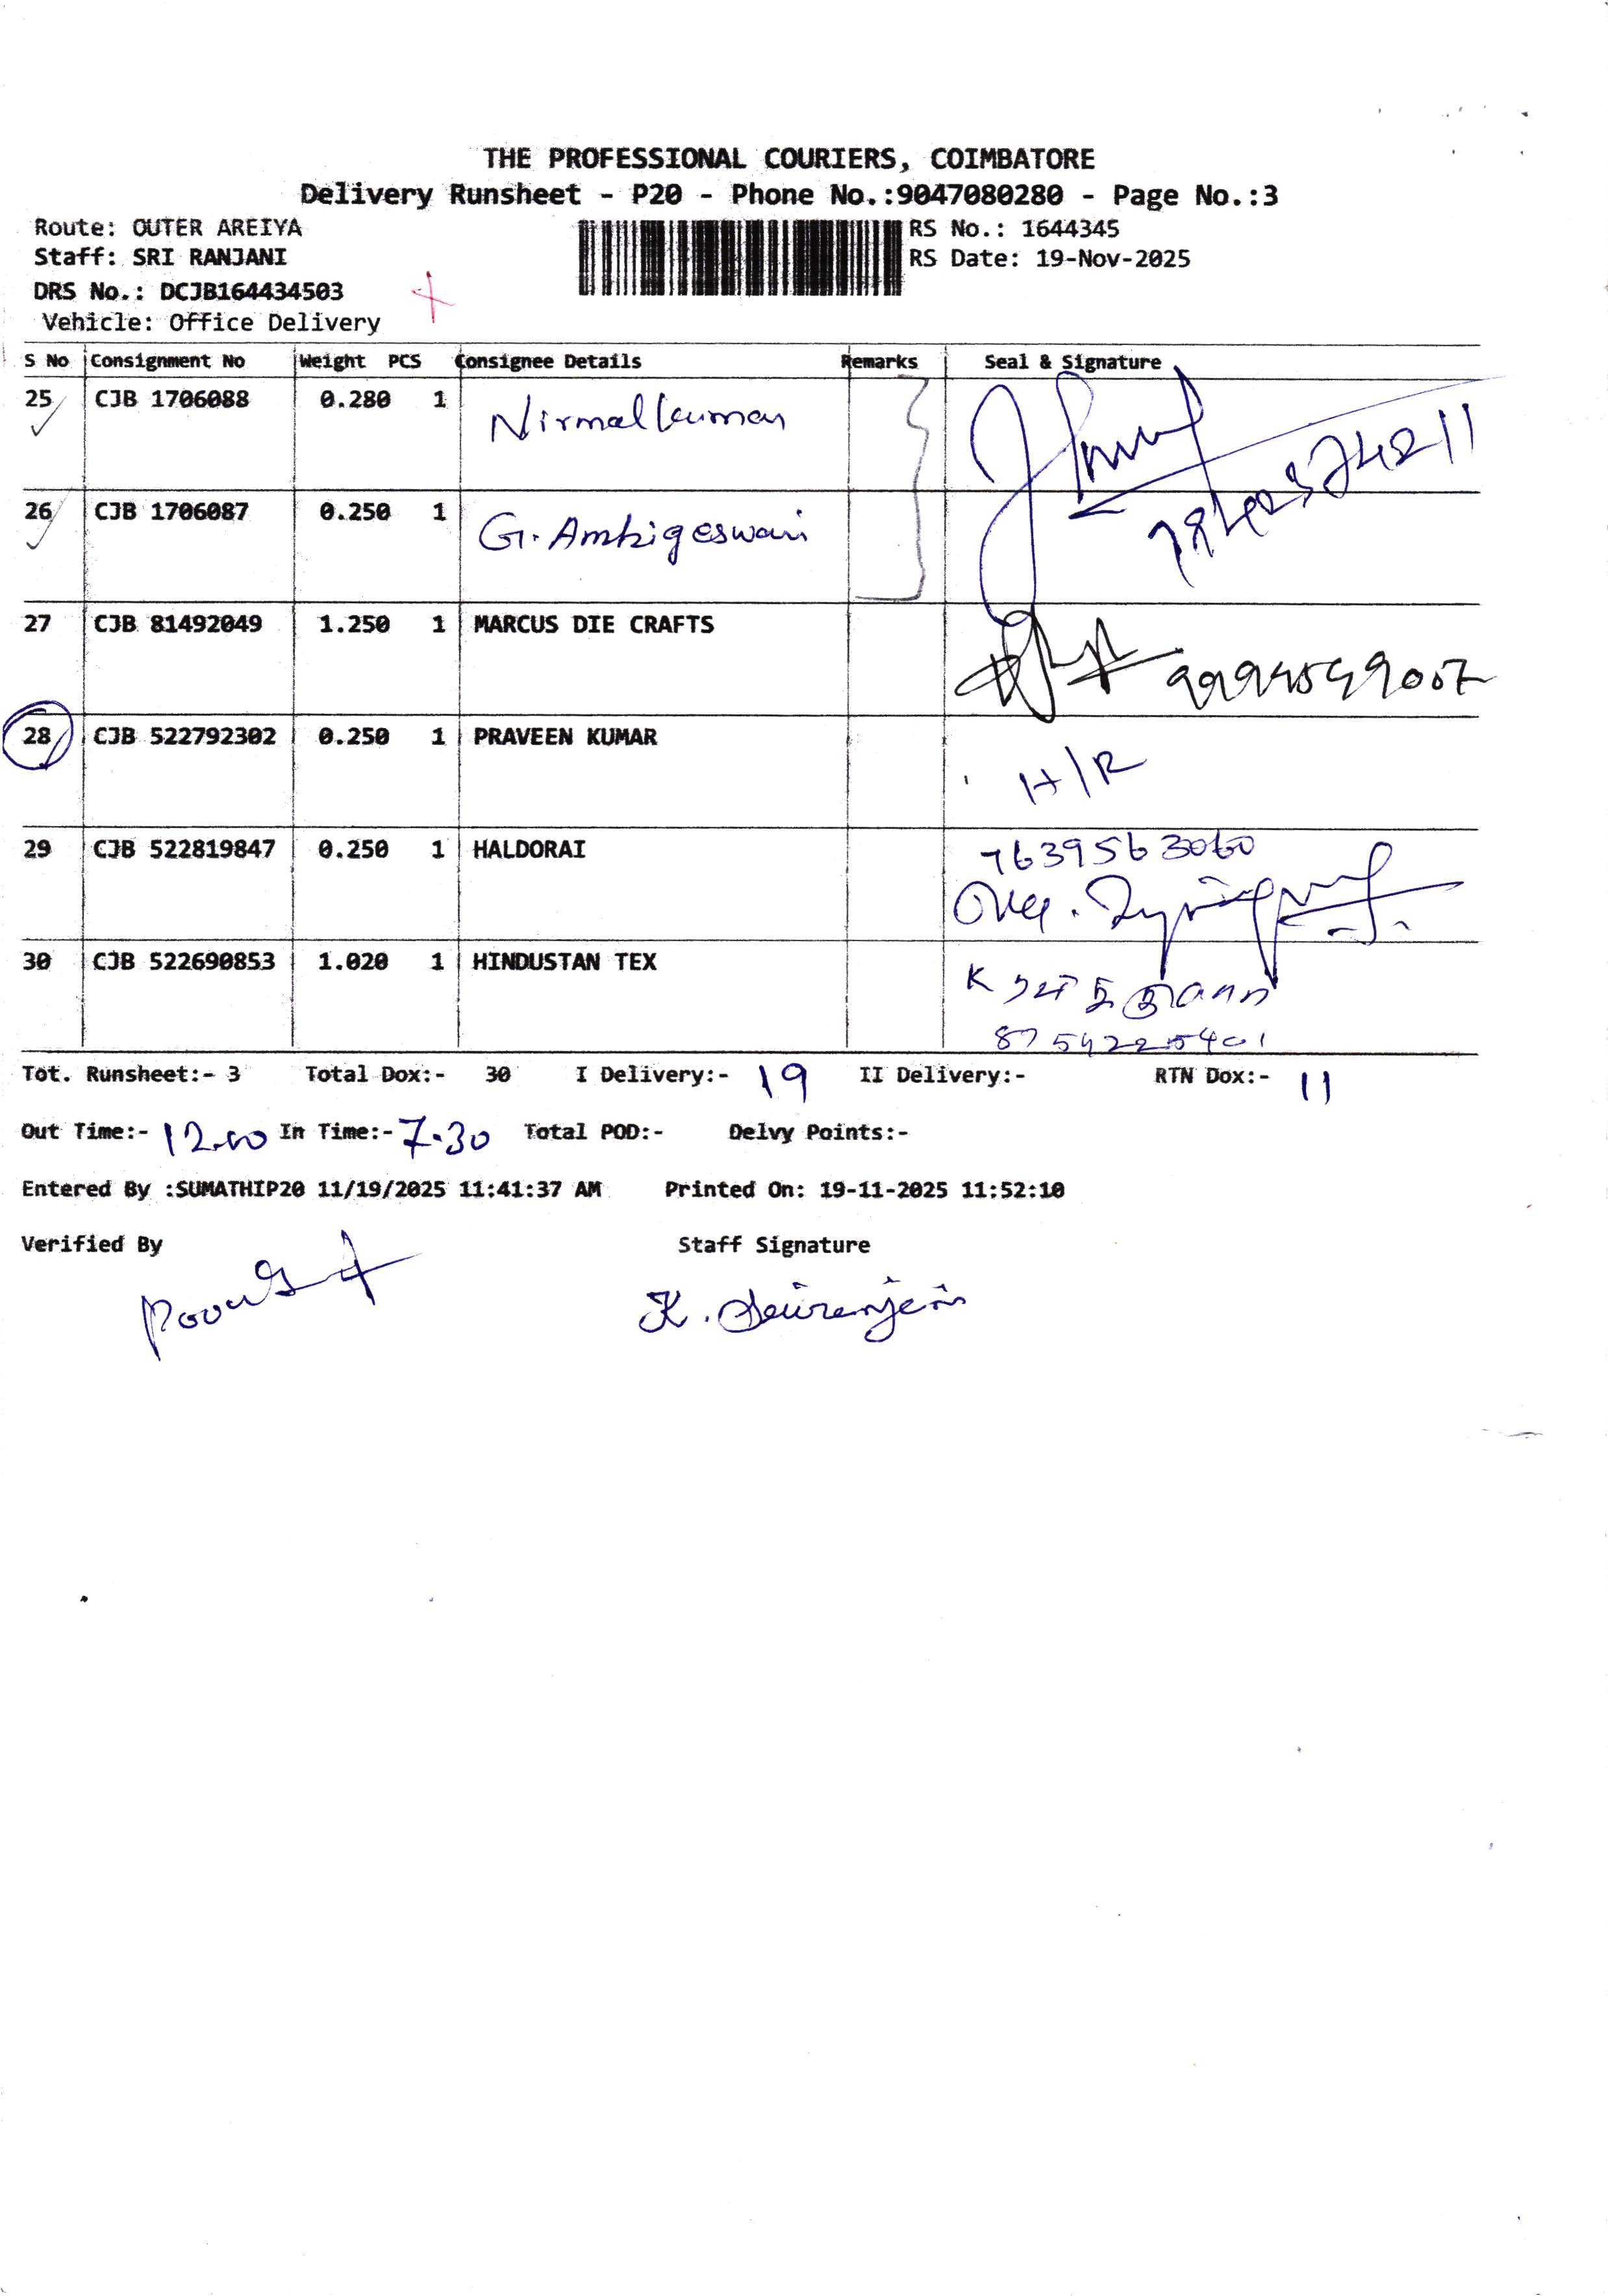 THE PROFESSIONAL COURIERS, COIMBATORE
Delivery Runsheet - P20 - Phone No.:9047080280 - Page No.:3
Route: OUTER AREIYA
RS No.: 1644345
Staff: SRI RANJANI
RS Date: 19-Nov-2025
DRS No.: DCJB164434503
Vehicle: Office Delivery
S No Consignment No Weight PCS Consignee Details Remarks Seal & Signature
25 CJB 1706088 0.280 1 Nirmalkumar
26 CJB 1706087 0.250 1 G. Ambigeswari
27 CJB 81492049 1.250 1 MARCUS DIE CRAFTS
28 CJB 522792302 0.250 1 PRAVEEN KUMAR H/R
29 CJB 522819847 0.250 1 HALDORAI 7639563060
30 CJB 522690853 1.020 1 HINDUSTAN TEX K
8754225401
Tot. Runsheet:- 3 Total Dox:- 30 I Delivery:- 19 II Delivery:- RTN Dox:- 11
Out Time:- 12.00 In Time:- 7.30 Total POD:- Delvy Points:-
Entered By :SUMATHIP20 11/19/2025 11:41:37 AM Printed On: 19-11-2025 11:52:10
Verified By Staff Signature